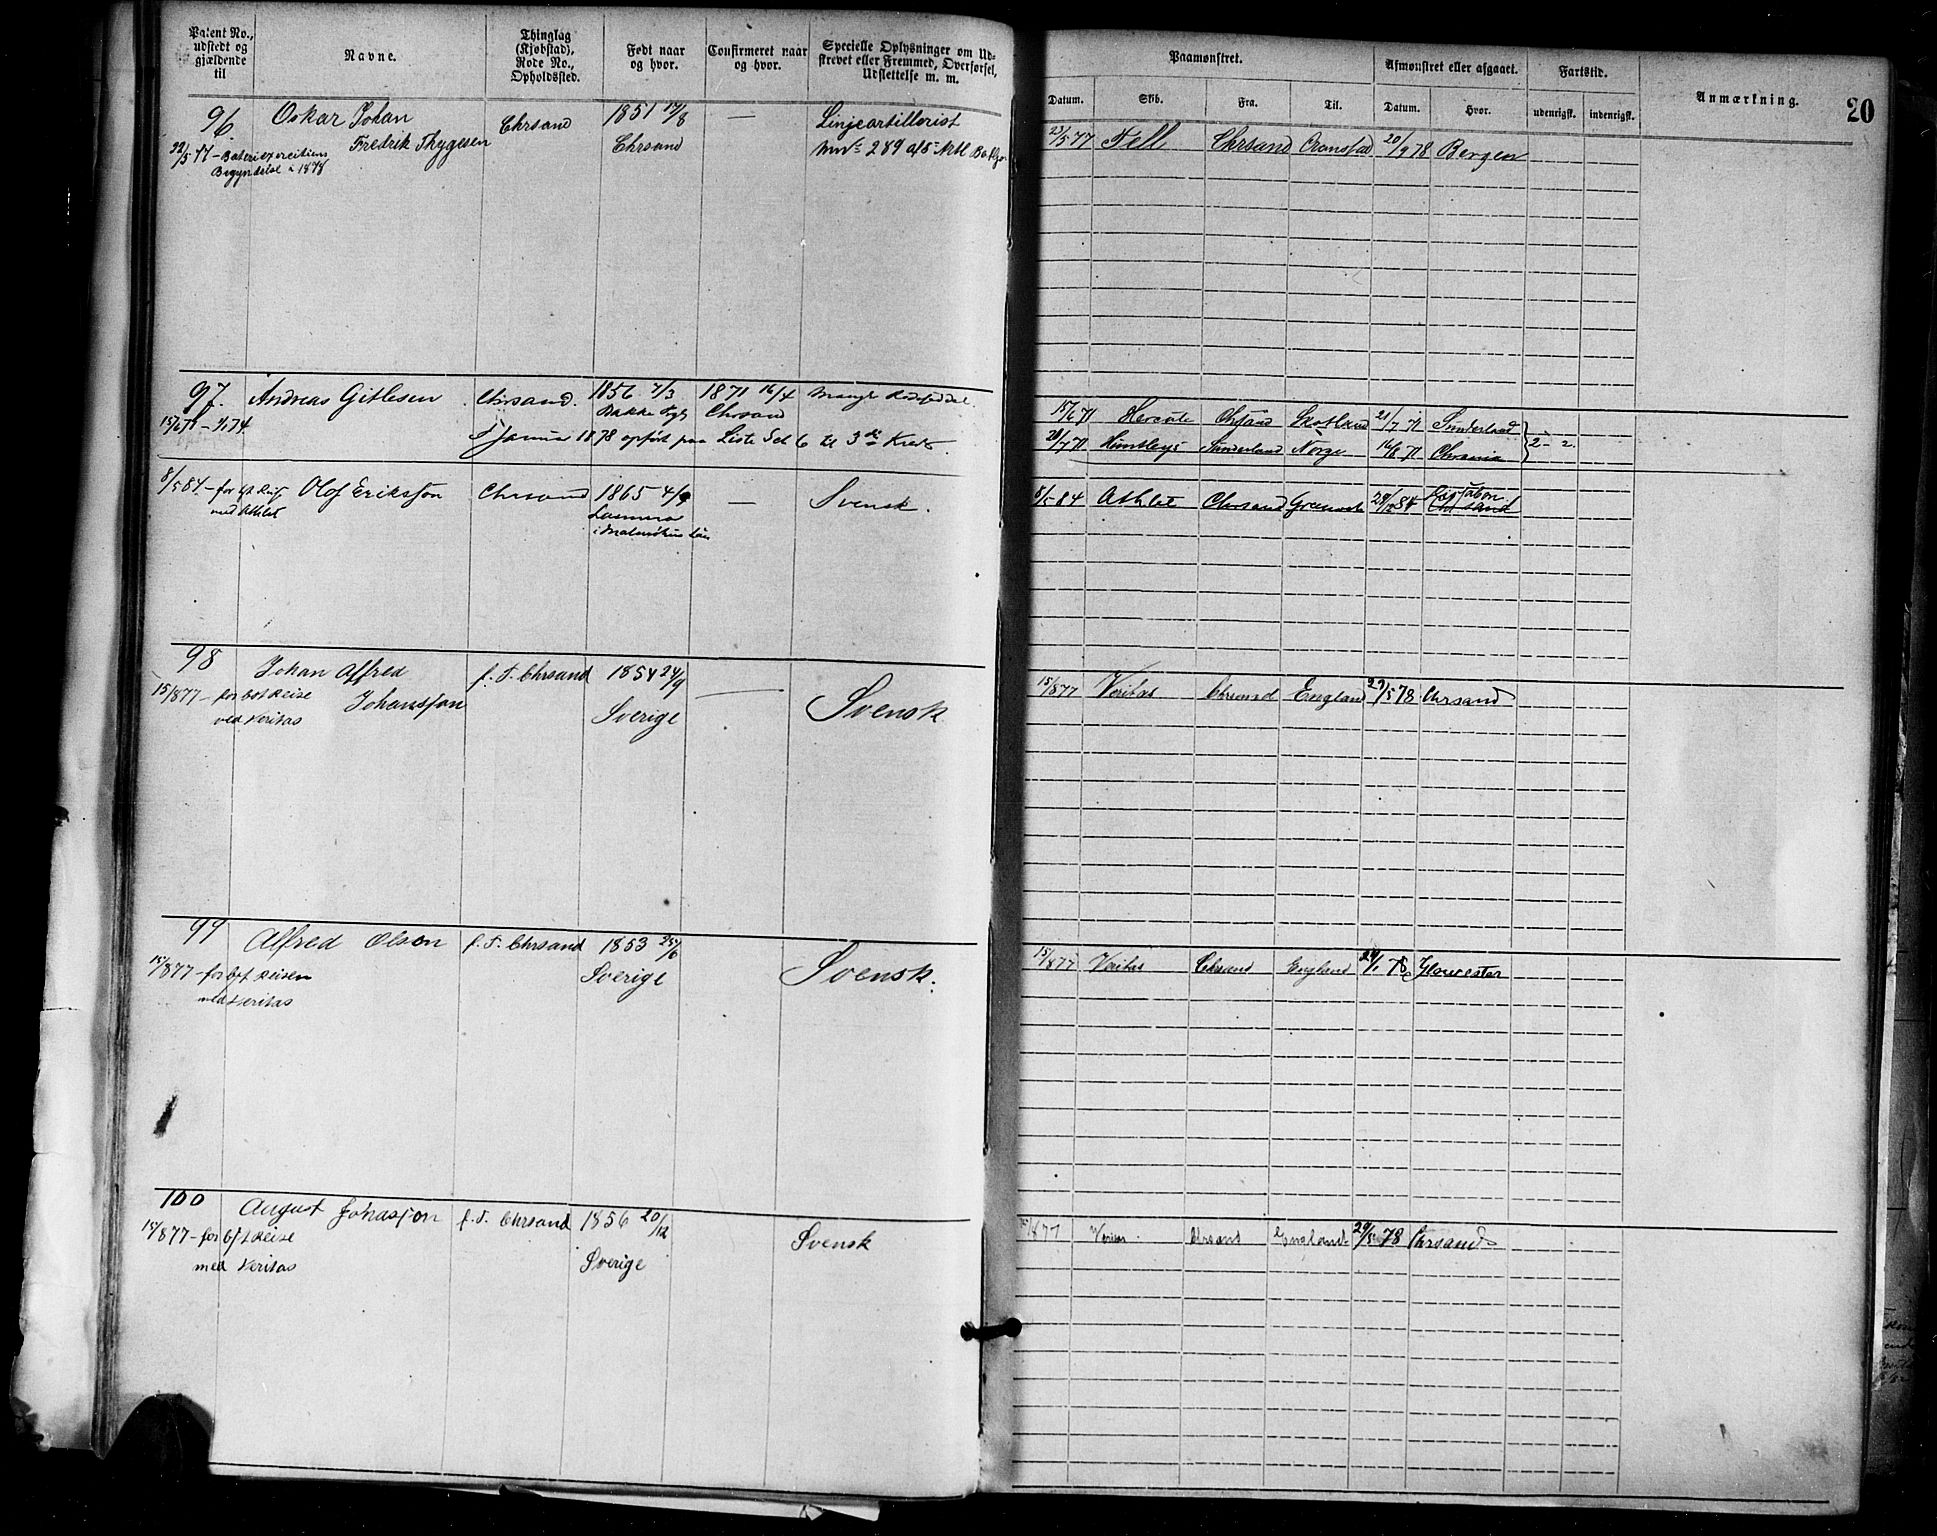 Patent No., udstedt og gjældende til
Navne.
Thinglag (Kjøbstad), Rode No., Opholdssted.
Født naar og hvor.
Confirmeret naar og hvor.
Specielle Oplysninger om Udstrevet eller Fremmed, Overførsel, Udslettelse m. m.
Paamønstret.
Afmønstret eller afgaaet.
Fartstid.
Anmærkning.
20
Datum. Skib. Fra. Til. Datum. Hvor. udenrigsk. indenrigsk.
96 Oskar Johan Chrsand 1851 — Linjeartillerist
22/5 77 Fredrik Thygesen Chrsand 289
Begyndelse 1878
23/5 77 Tell Chrsand Cronstad 20/9 78 Bergen
97. Andreas Gitlesen Chrsand. 1856 7/3 1871 16/4
Chrsand
Januar 1878 opført paa Liste 6 til 3
15/6 71 Chrsand Skotland 21/7 71 Sunderland
Sunderland Norge 16/8 71 Chrania 2 - 2.
8/5 84 Olof Eriksson Chrsand 1865 — Svensk.
med Athlet
8/5 84 Athlet Chrsand 84
98 Johan Alfred f. T. Chrsand 1854 24/9 — Svensk
15/8 77 - for bet Reise Johansson Sverige
med Veritas
15/8 77 Veritas Chrsand England 29/5 78 Chrsand
99 Alfred Olson f. T. Chrsand 1853 25/6 Svensk.
15/8 77 - for bet Reisen Sverige
med Veritas
15/8 77 Veritas Chrsand England 78 Glowcester
100 August Johasson f. T. Chrsand 1856 20/12 Svensk
15/8 77 - for bet Reise Sverige
med Veritas
15/8 77 Veritas Chrsand England 29/5 78 Chrsand